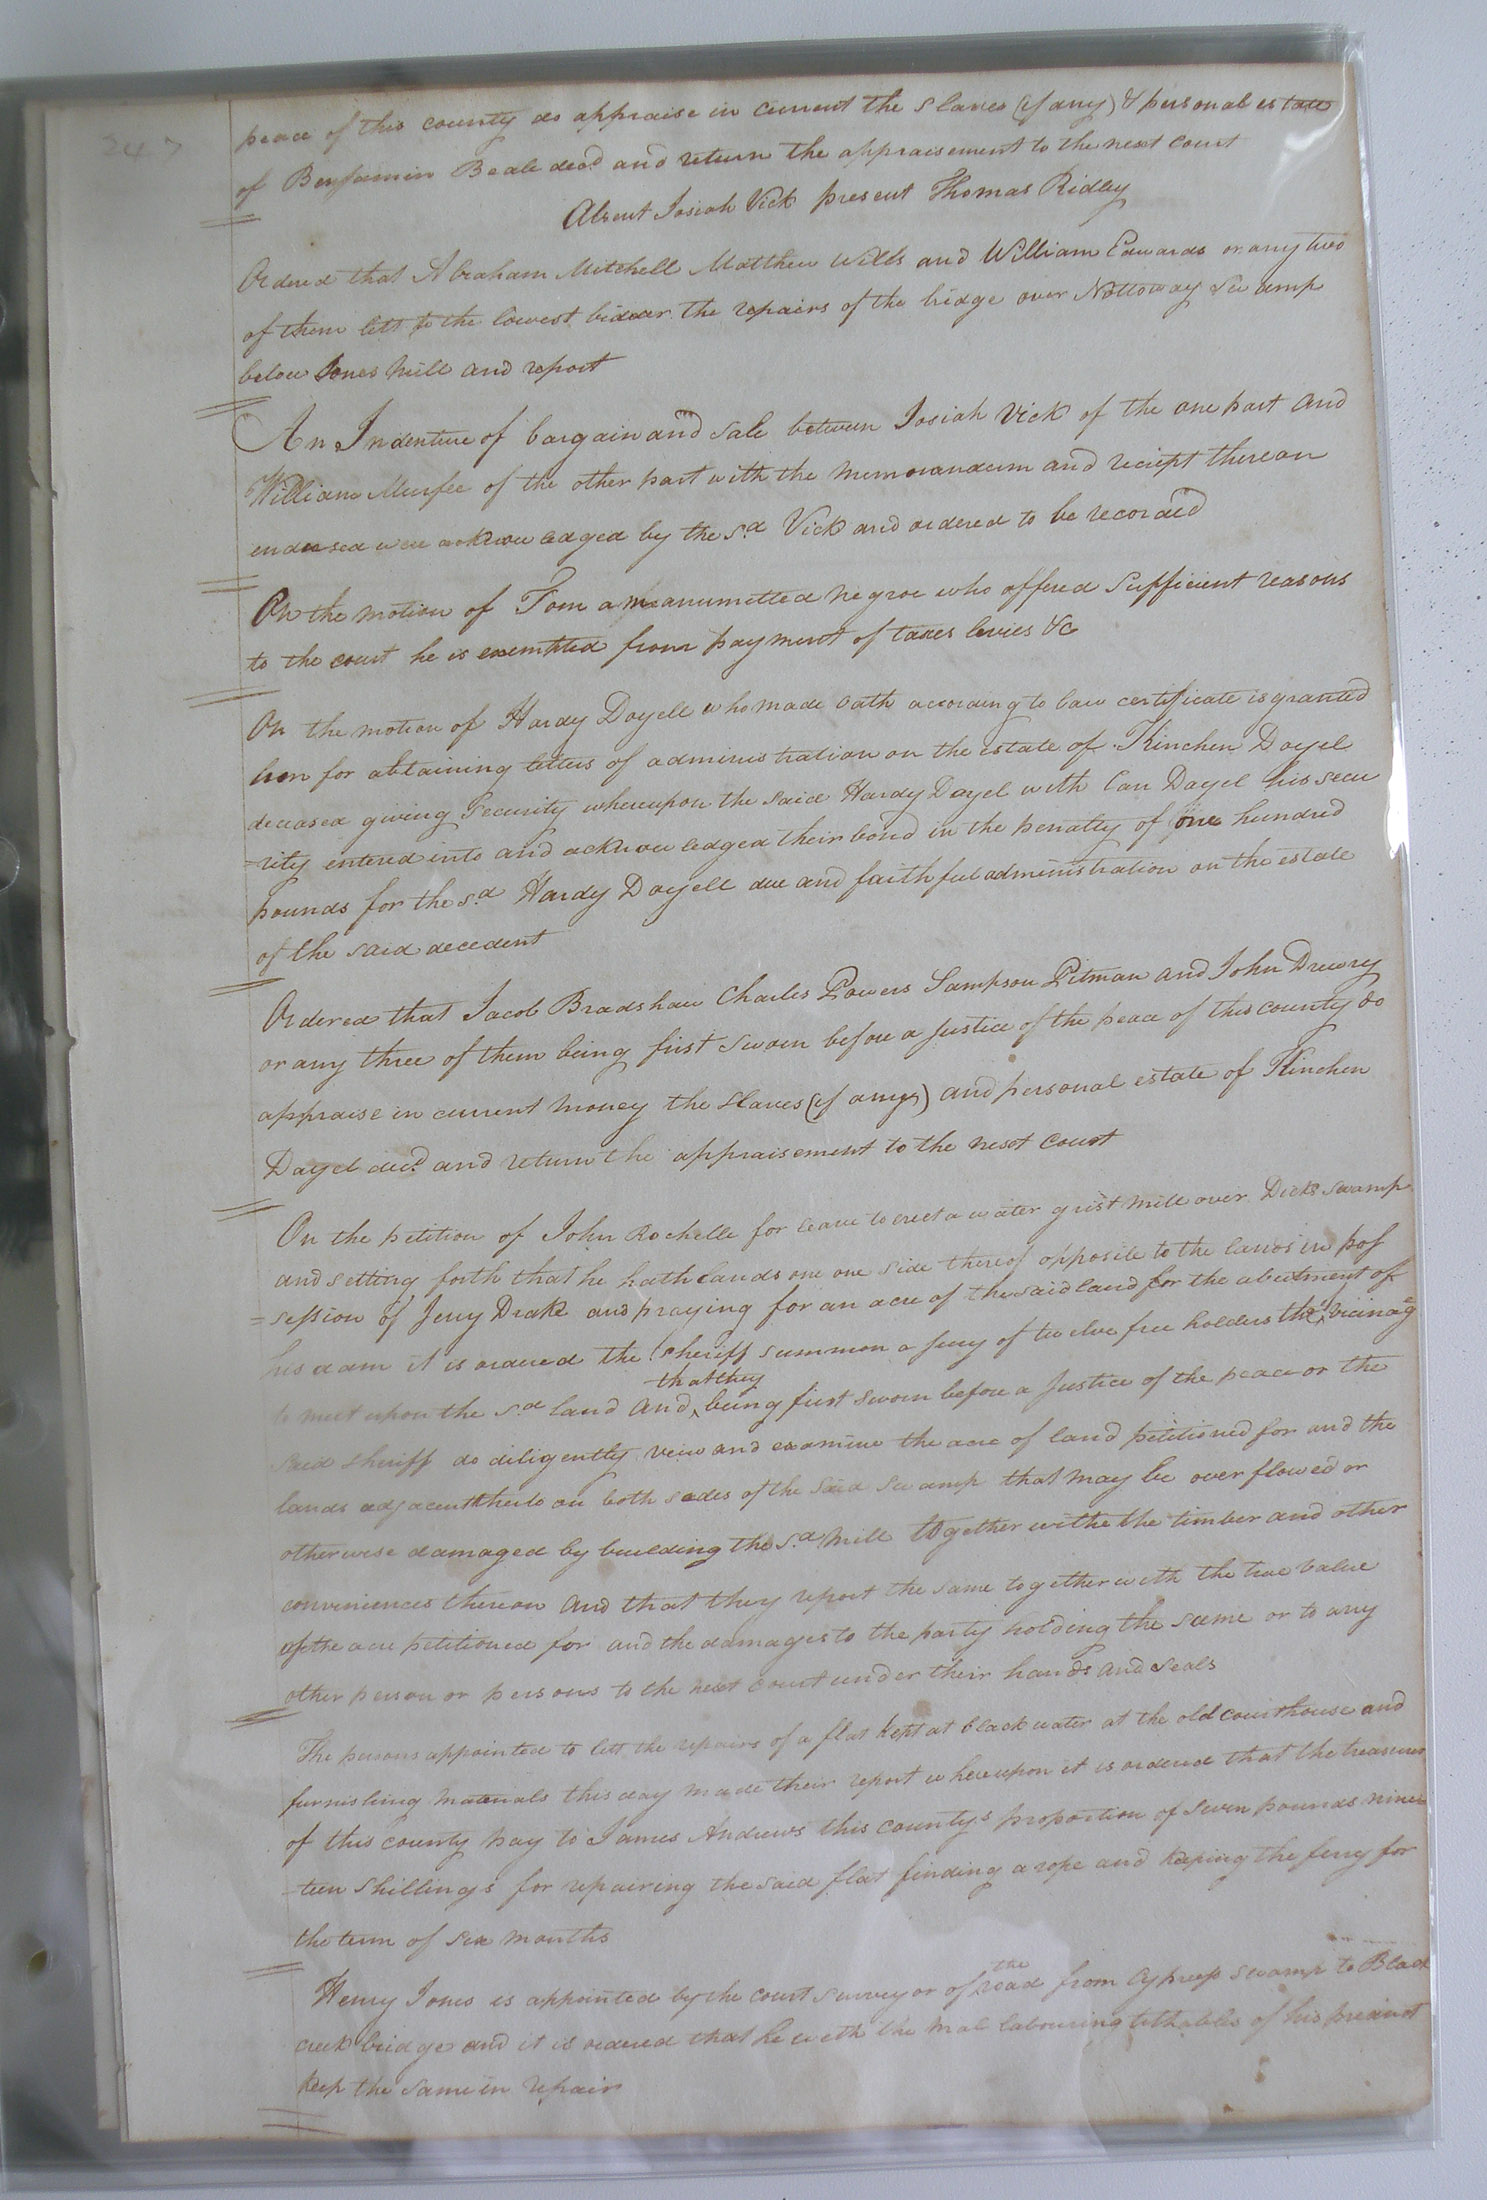 247
peace of this county do appraise in current the slaves (if any) & personal estate
of Benjamin Beale decd and return the appraisement to the next court
Absent Josiah Vick present Thomas Ridley
Ordered that Abraham Mitchell Matthew Wills and William Edwards or any two
of them lett to the lowest bidder the repairs of the bridge over Nottoway Swamp
below Jones mill and report
An Indenture of bargain and sale between Josiah Vick of the one part and
William Murfee of the other part with the memorandum and reciept thereon
endorsed were acknowledged by the sd Vick and ordered to be recorded
On the motion of Tom a manumitted negroe who offered sufficient reasons
to the court he is exempted from payment of taxes levies &c
On the motion of Hardy Doyell who made oath according to law certificate is granted
him for obtaining letters of administration on the estate of Kinchen Doyel
deceased giving security whereupon the said Hardy Doyel with Carr Doyel his secu
=rity entered into and acknowledged their bond in the penalty of one hundred
pounds for the sd Hardy Doyell due and faithful administration on the estate
of the said decedent
Ordered that Jacob Bradshaw Charles Powers Sampson Pitman and John Drewry
or any three of them being first sworn before a justice of the peace of this county do
appraise in current money the slaves (if any) and personal estate of Kinchen
Doyel decd and return the appraisement to the next court
On the petition of John Rochelle for leave to erect a water grist mill over Dicks swamp
and setting forth that he hath lands one one side thereof opposite to the lands in pos
=session of Jerry Drake and praying for an acre of the said land for the abutment of
his dam it is ordered the sheriff summon a jury of twelve free holders the vicinag
to meet upon the sd land and that they being first sworn before a justice of the peace or the
said sheriff do diligently veiw and examine the acre of land petitioned for and the
lands adjacent thereto on both sedes of the said swamp that may be over flowed or
otherwise damaged by building the sd mill together withe the timber and other
conveniences thereon and that they report the same together with the true value
of the acre petitioned for and the damages to the party holding the same or to any
other person or persons to the next court under their hands and seals
The persons appointed to lett the repairs of a flat kept at black water at the old courthouse and
furnishing materials this day made their report whereupon it is ordered that the treasurer
of this county pay to James Andrews this countys proportion of seven pounds nine
=teen shillings for repairing the said flat finding a rope and keeping the ferry for
the term of six months
Henry Jones is appointed by the court surveyor of the road from Cypress swamp to Black
creek bridge and it is ordered that he with the mal labouring tithables of his precinct
keep the same in repair